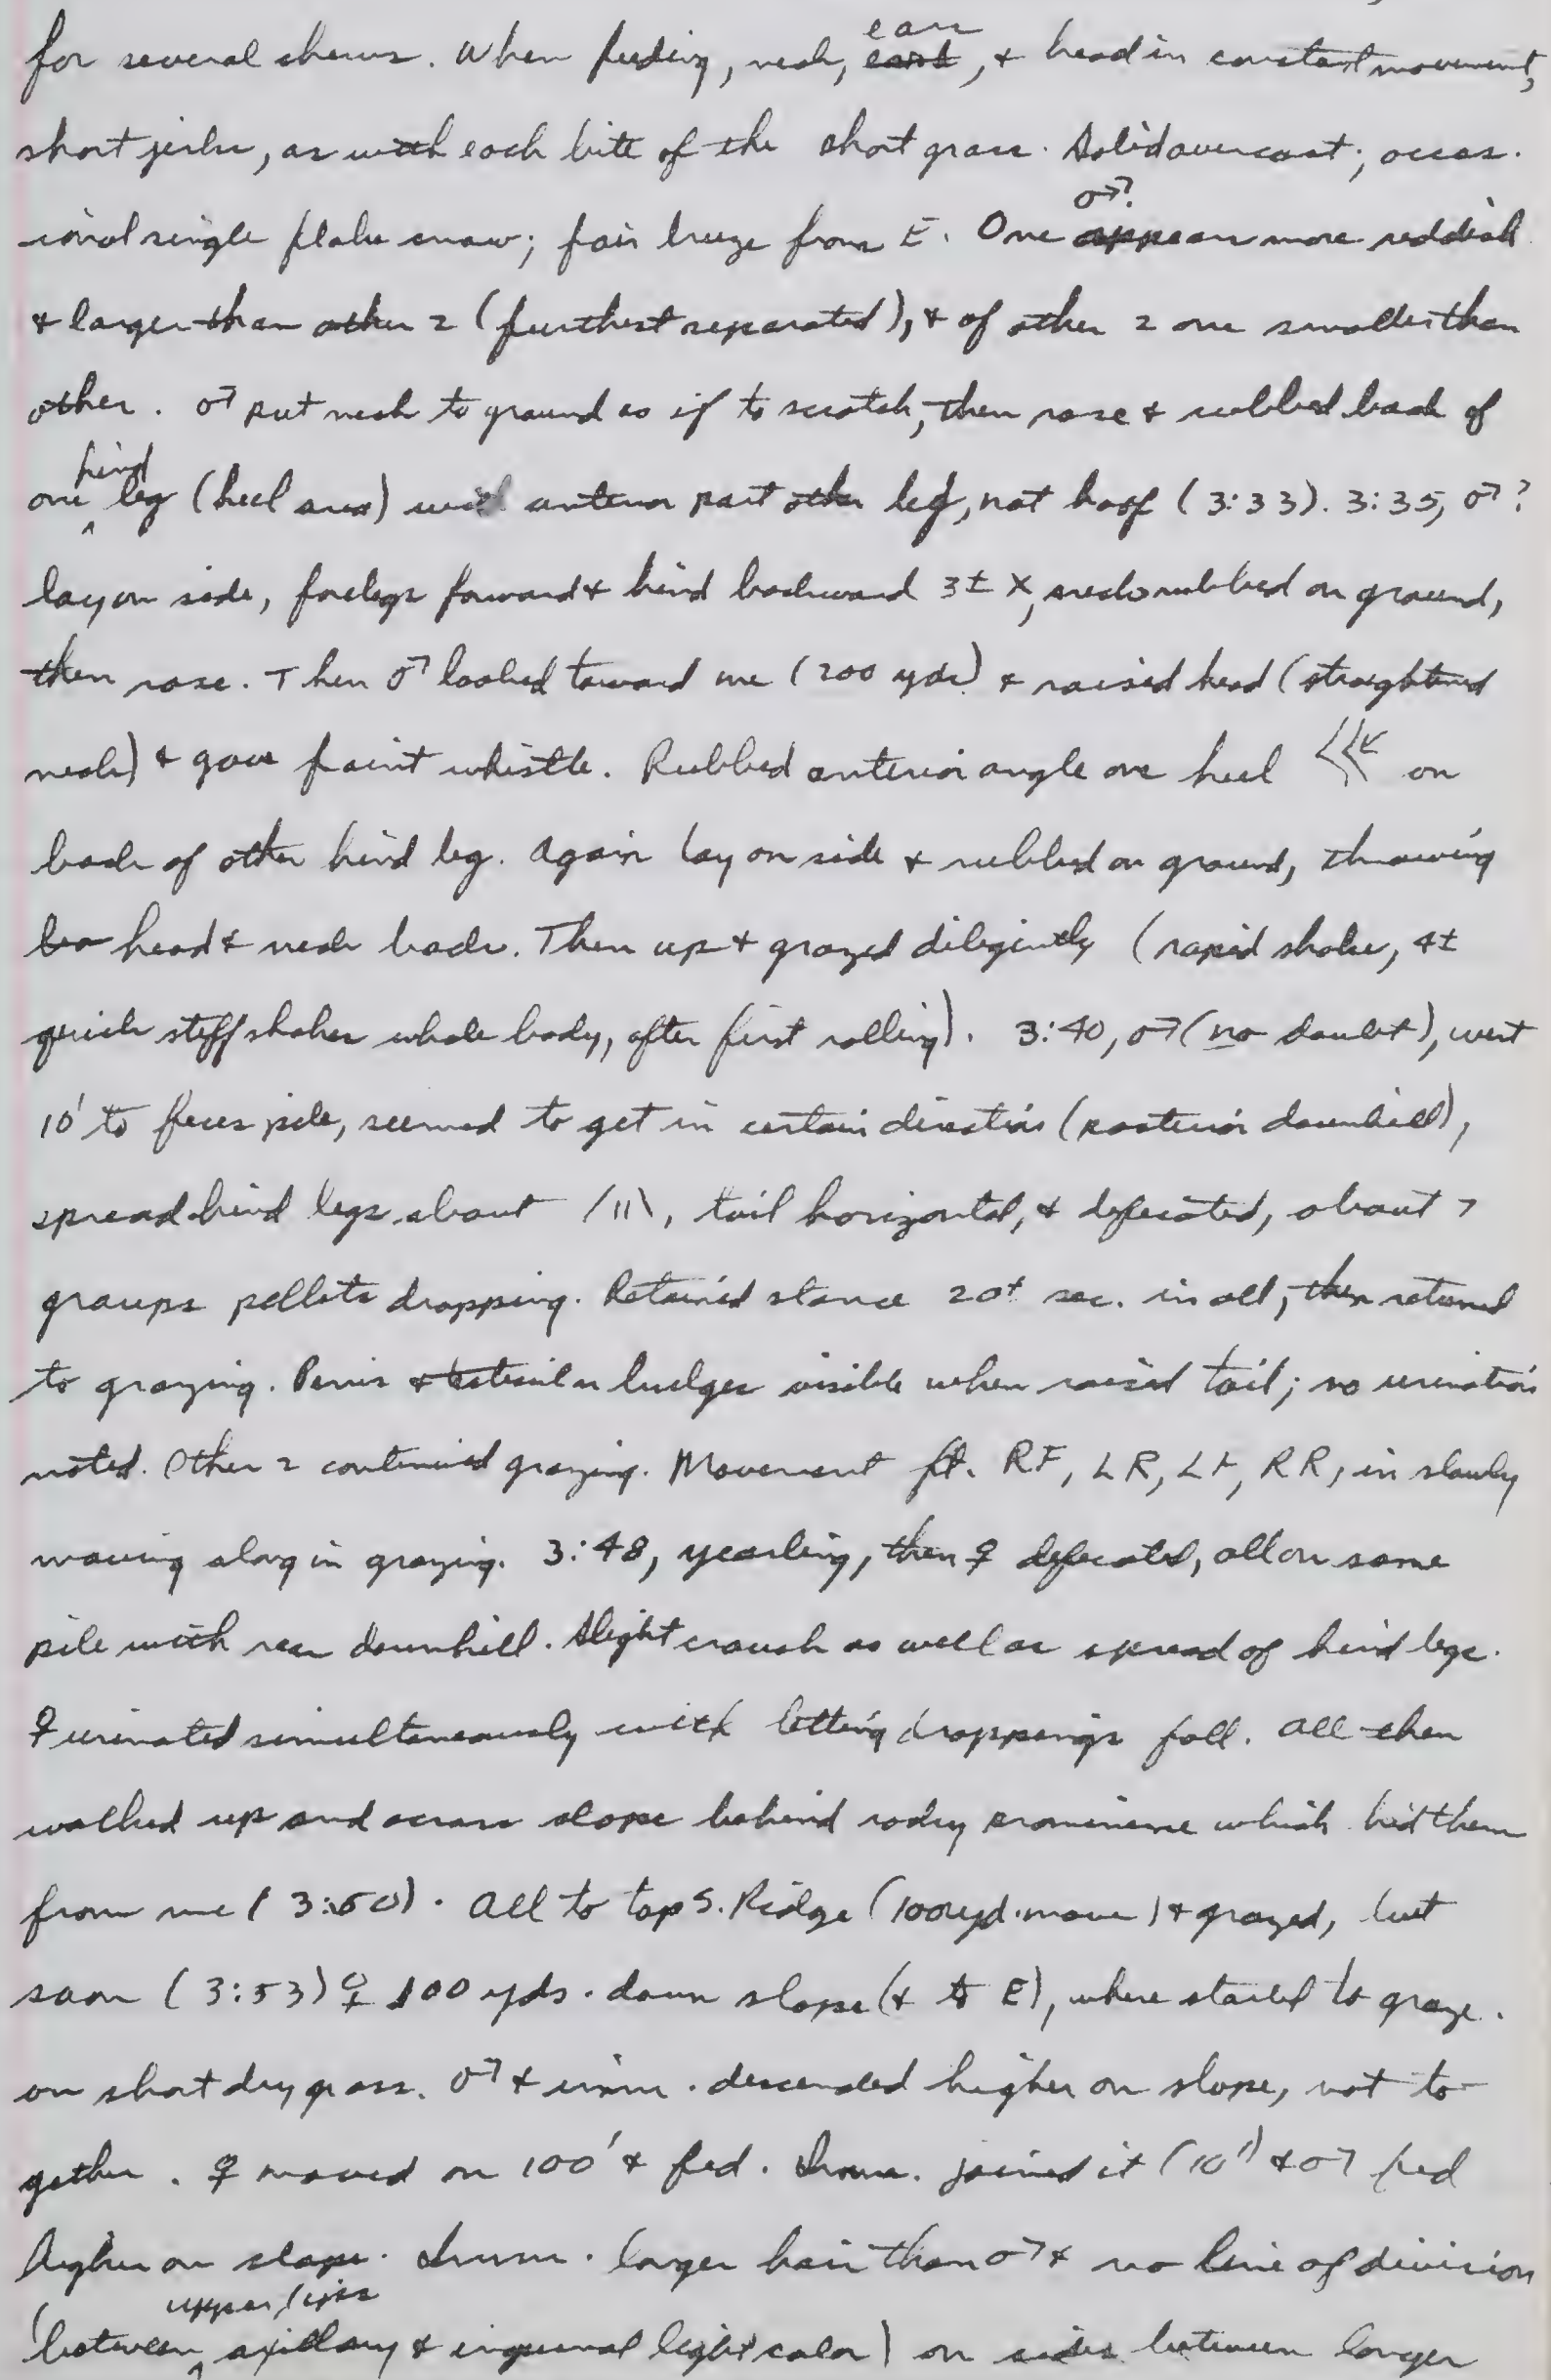 for several chews. When feeding, neck, ears, & head in constant movement,
short jerks, as with each bite of the short grass. Solid overcast; occas-
ional single flake snow; fair breeze from E. One ♂? appears more reddish
& larger than other 2 (furthest separated), & of other 2 one smaller than
other. ♂ put neck to ground as if to scratch, then rose & rubbed back of
one hind leg (heel area) with anterior part other leg, not hoof (3:33). 3:35, ♂?
lay on side, forelegs forward & hind backward 3± X, rubbed on ground,
then rose. Then ♂ looked toward me (200 yds) & raised head (straightened
neck) & gave faint whistle. Rubbed anterior angle one heel on
back of other hind leg. Again lay on side & rubbed on ground, throwing
head & neck back. Then up & grazed diligently (rapid shake, 4±
quick stiff shakes whole body, after first rolling). 3:40, ♂ (no doubt), went
10' to feces pile, seemed to get in certain direction (posterior downhill),
spread hind legs about /||\, tail horizontal, & defecated, about 7
groups pellets dropping. Retained stance 20± sec. in all, then returned
to grazing. Penis & testicular bulges visible when raised tail; no urination
noted. Other 2 continued grazing. Movement ft. RF, LR, LF, RR, in slowly
moving along in grazing. 3:48, yearling, then ♀ defecated, all on same
pile with rear downhill. Slight crouch as well as spread of hind legs.
♀ urinated simultaneously with letting droppings fall. All then
walked up and across slope behind rocky prominence which hid them
from me (3:50). All to top S. Ridge (100 yd. move) & grazed, but
soon (3:53) ♀ 100 yds. down slope (& to E), where started to graze.
on short dry grass. ♂ & imm. descended higher on slope, not to-
gether. ♀ moved on 100' & fed. Imm. joined it (10') & ♂ fed
higher on slope. Imm. longer hair than ♂ & no line of division
(between upper/ axillary & inguinal light color) on sides between longer